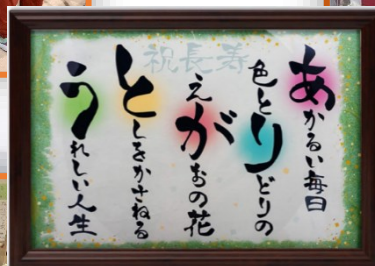 祝長寿
あかるい毎日
色とりどりの
えがおの花
としをかさねる
うれしい人生